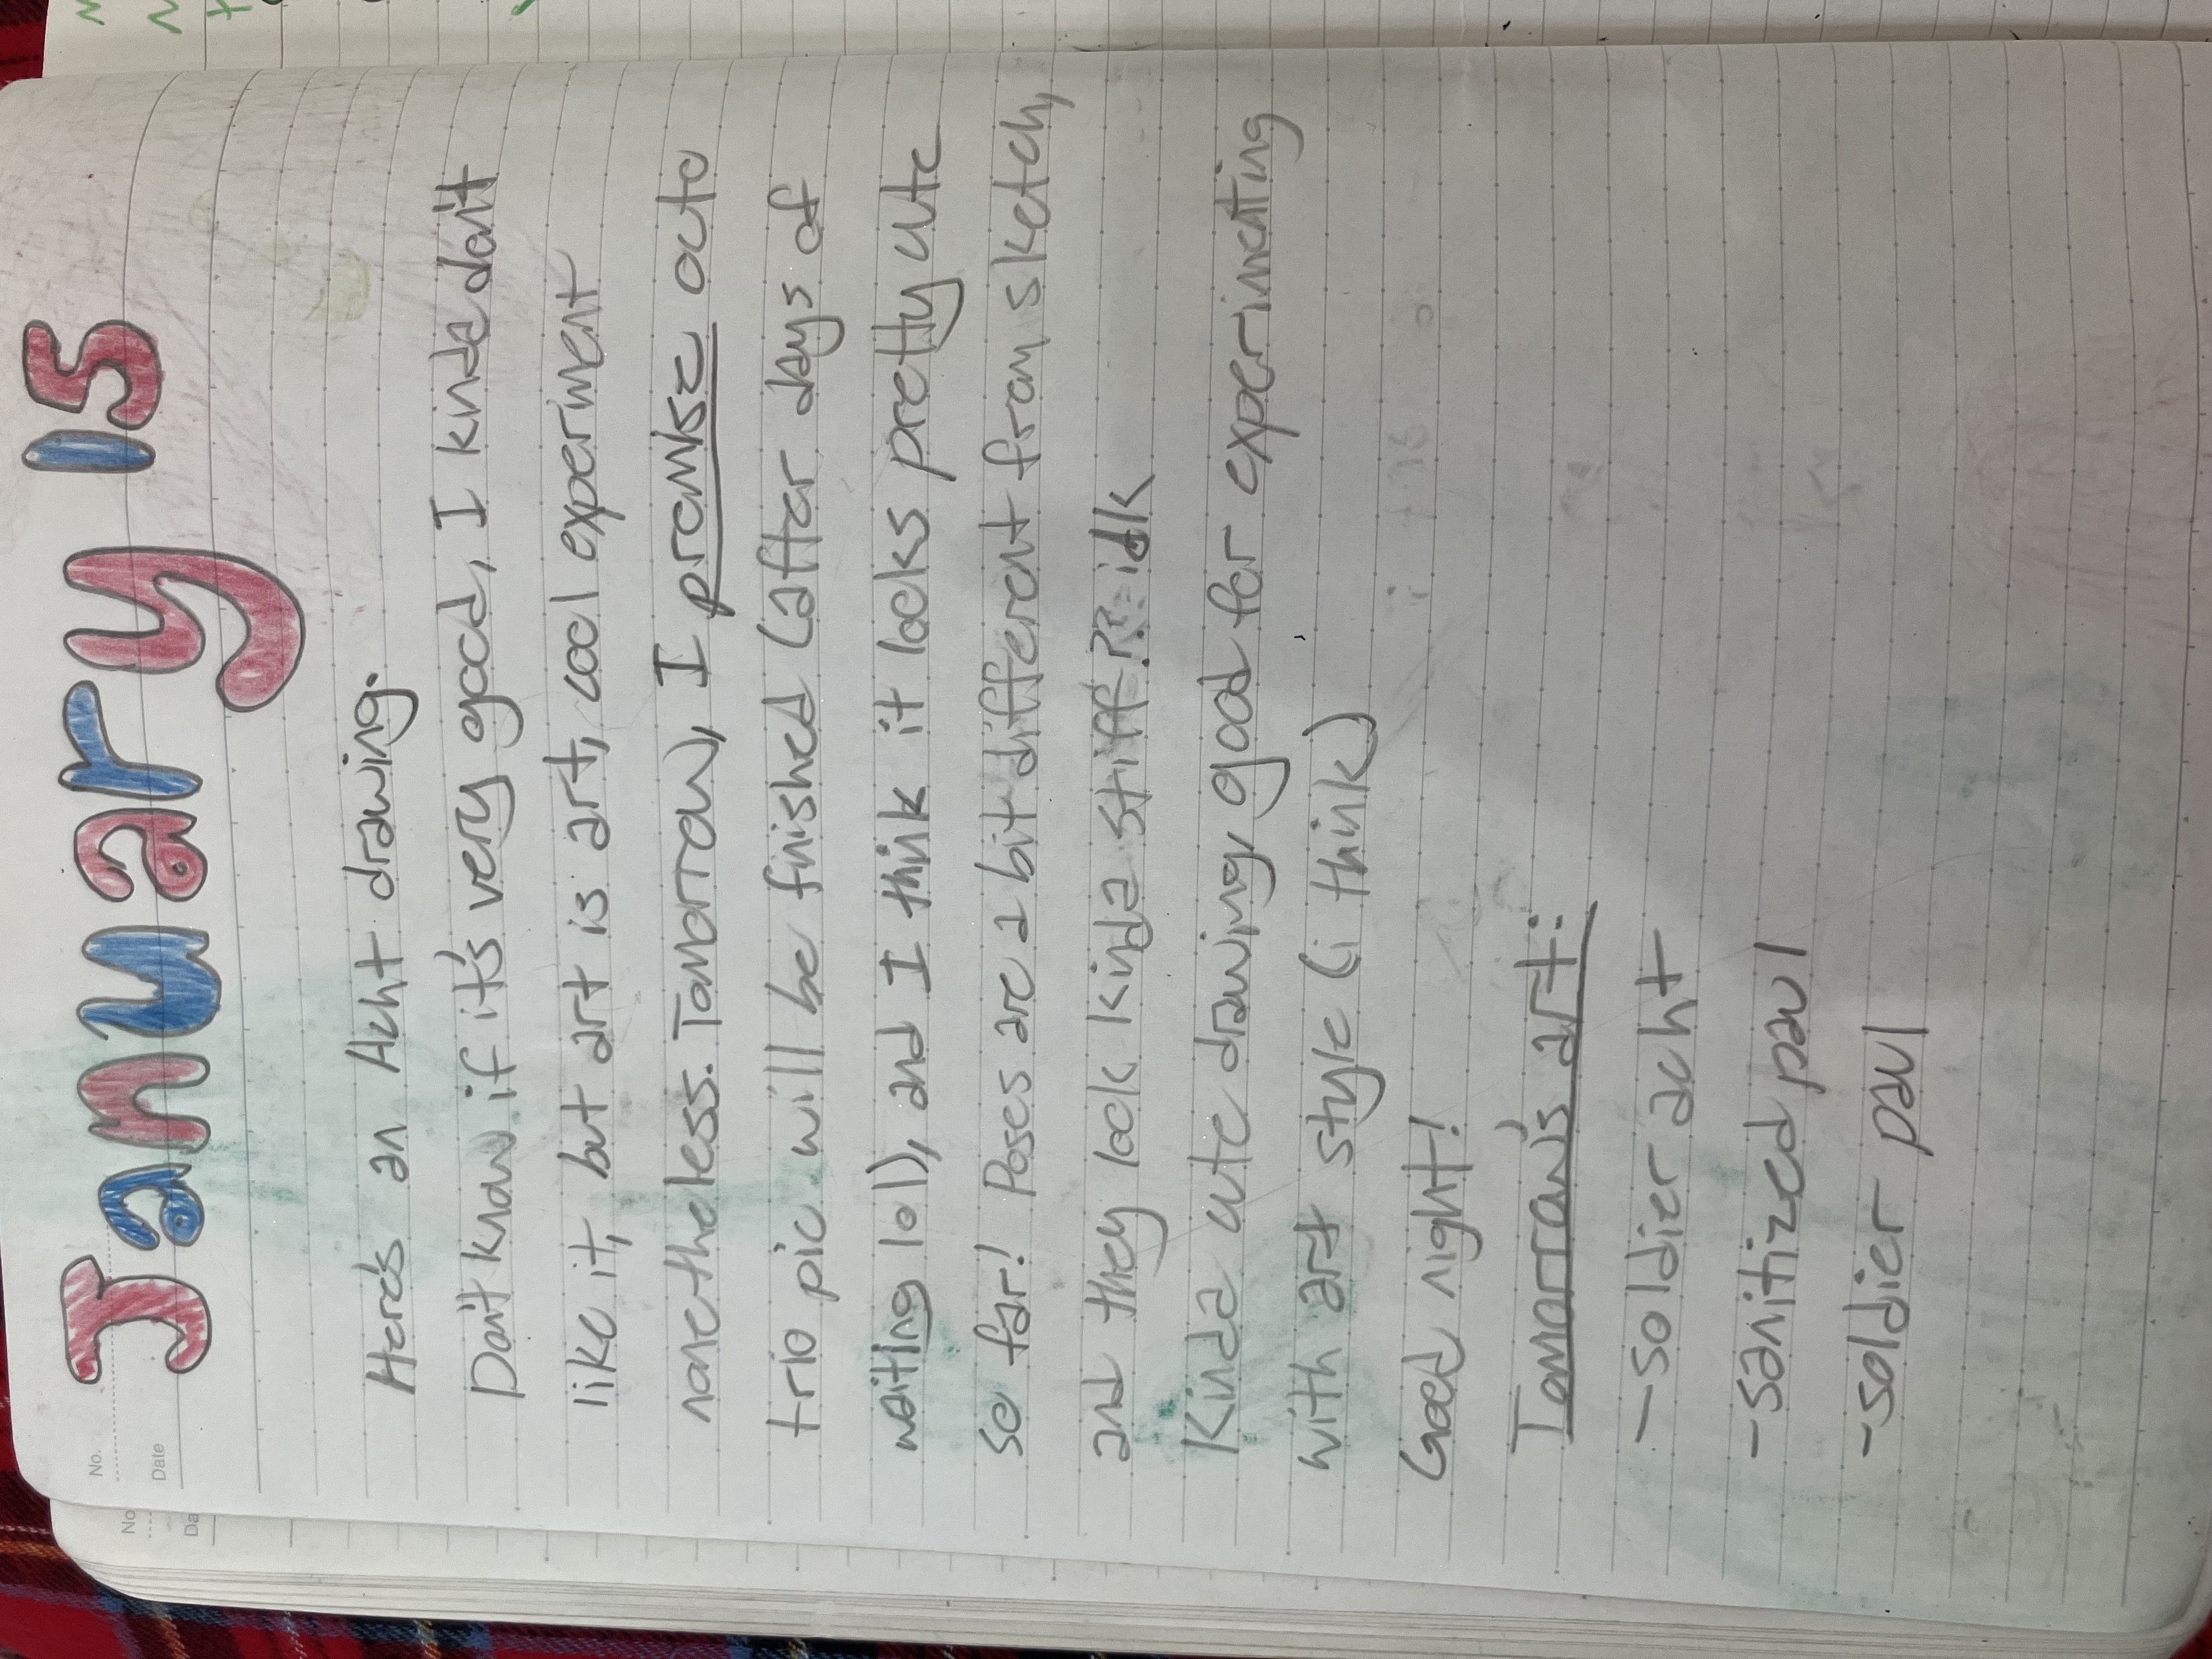 January 15
No.
Date
No
Da
Here's an Acht drawing.
Don't know if it's very good, I kinda don't
like it, but art is art, cool experiment
nonetheless. Tomorrow, I promise octo
trio pic will be finished (after days of
waiting lol), and I think it looks pretty cute
so far! Poses are a bit different from sketch,
and they look kinda stiff?? idk
Kinda cute drawing, good for experimenting
with art style (i think)
Good night!
Tomorrow's art:
-soldier acht
-sanitized paul
-soldier paul